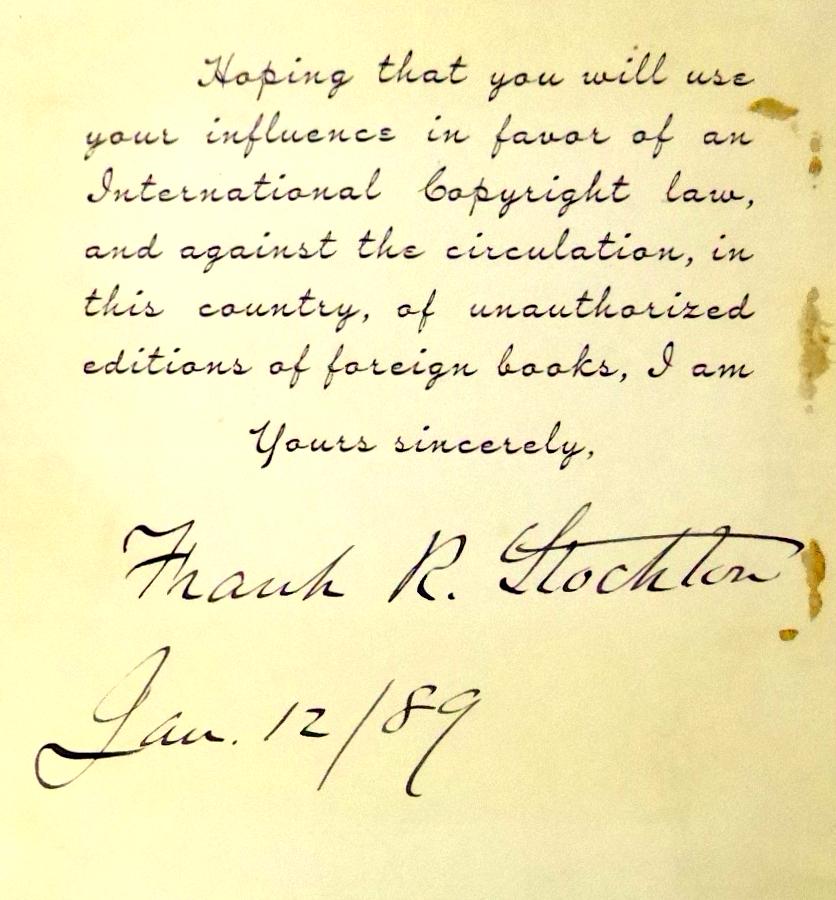 Hoping that you will use
your influence in favor of an
International Copyright law,
and against the circulation, in
this country, of unauthorized
editions of foreign books, I am
Yours sincerely,
Frank R. Stockton
Jan. 12/89